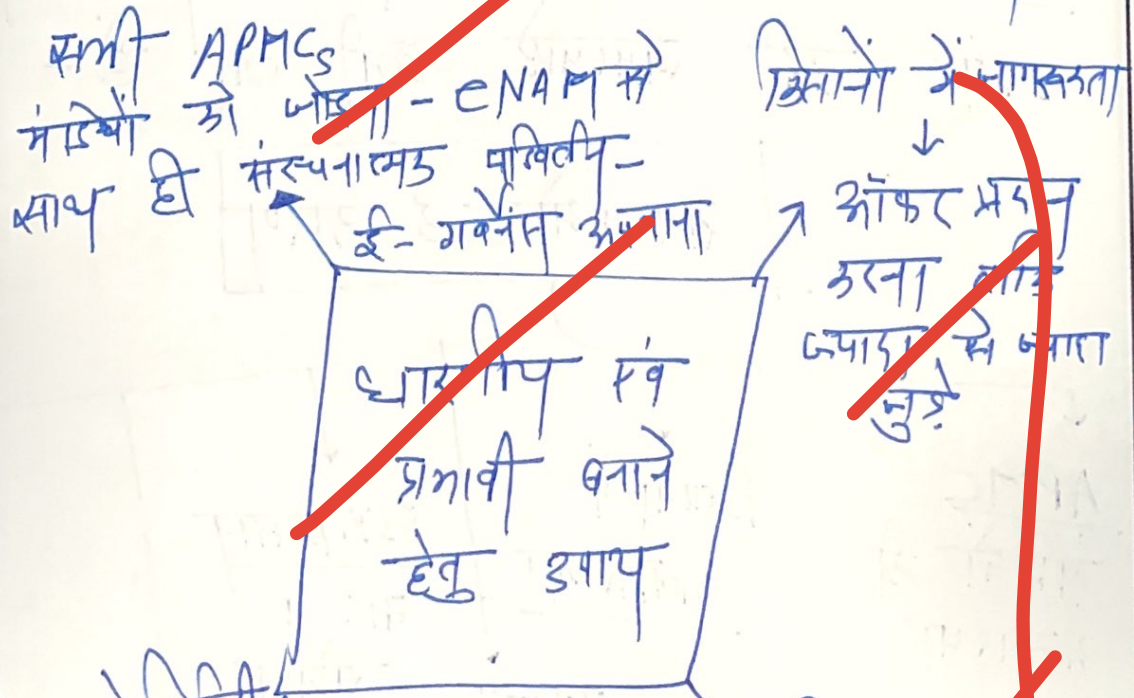 सभी APMCs
मंडियों को जोड़ना - eNAM से
साथ ही संरचनात्मक परिवर्तन -
ई- गवर्नेंस अपनाना
किसानों में जागरूकता
↓
ऑफर प्रदान
करना ताकि
ज्यादा से ज्यादा
जुड़े
धारणीय एवं
प्रभावी बनाने
हेतु उपाय